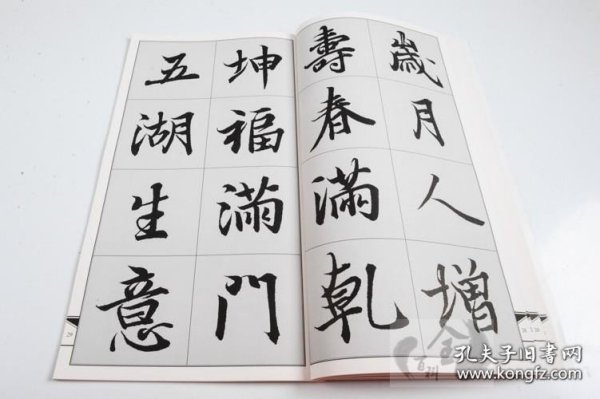 歲月人增
壽春滿乾
坤福滿門
五湖生意
孔夫子旧書网
www.kongfz.com